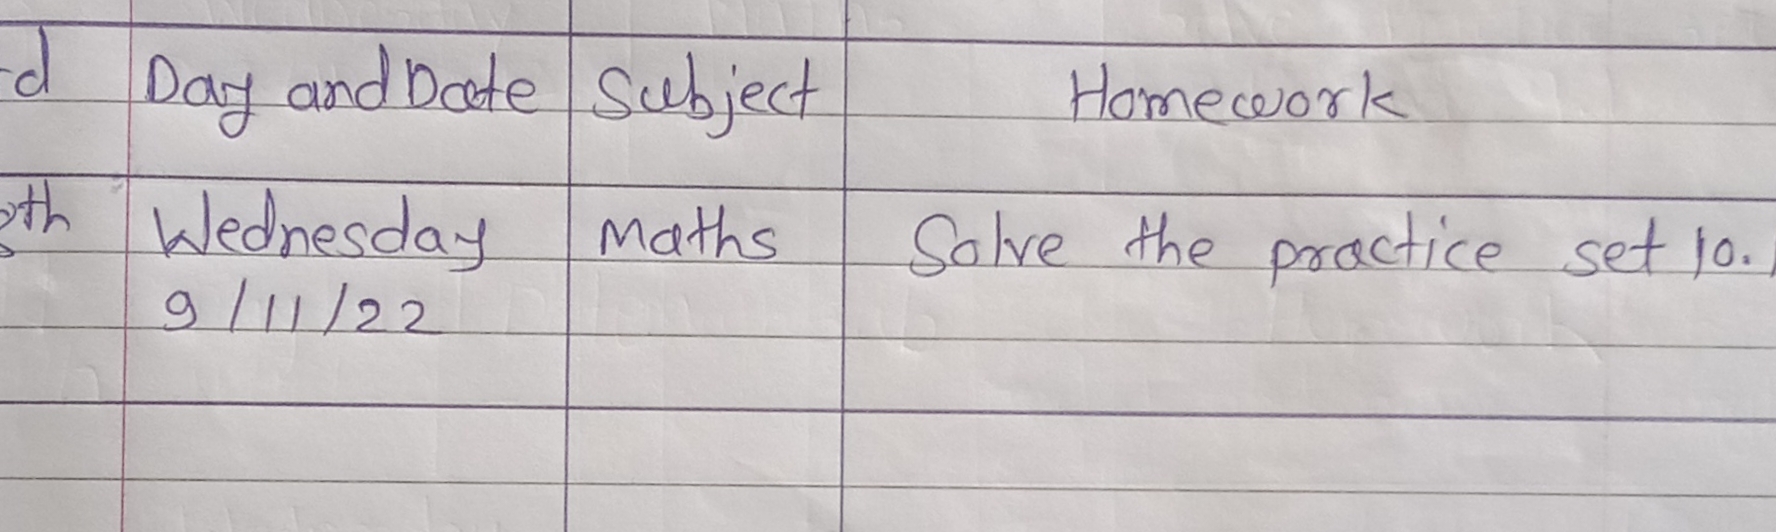 d Day and Date Subject Homework
th Wednesday Maths Solve the practice set 10.
9/11/22